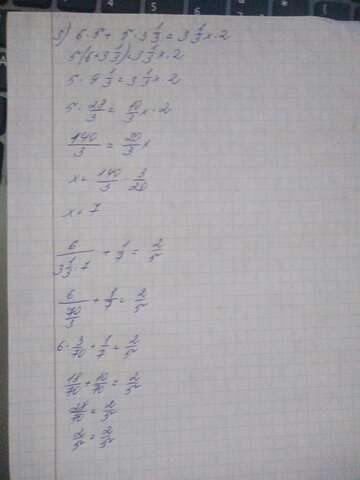 3) 6·5+ 5·3 1/3 = 3 1/3 x·2
5(6+3 1/3)=3 1/3 x·2
5·9 1/3 = 3 1/3 x·2
5·28/3 = 10/3 x·2
140/3 = 20/3 x
x= 140/3 · 3/20
x=7
6/(3 1/3·7) + 1/7 = 2/5
6/(70/3) + 1/7 = 2/5
6·3/70 + 1/7 = 2/5
18/70 + 10/70 = 2/5
28/70 = 2/5
2/5 = 2/5